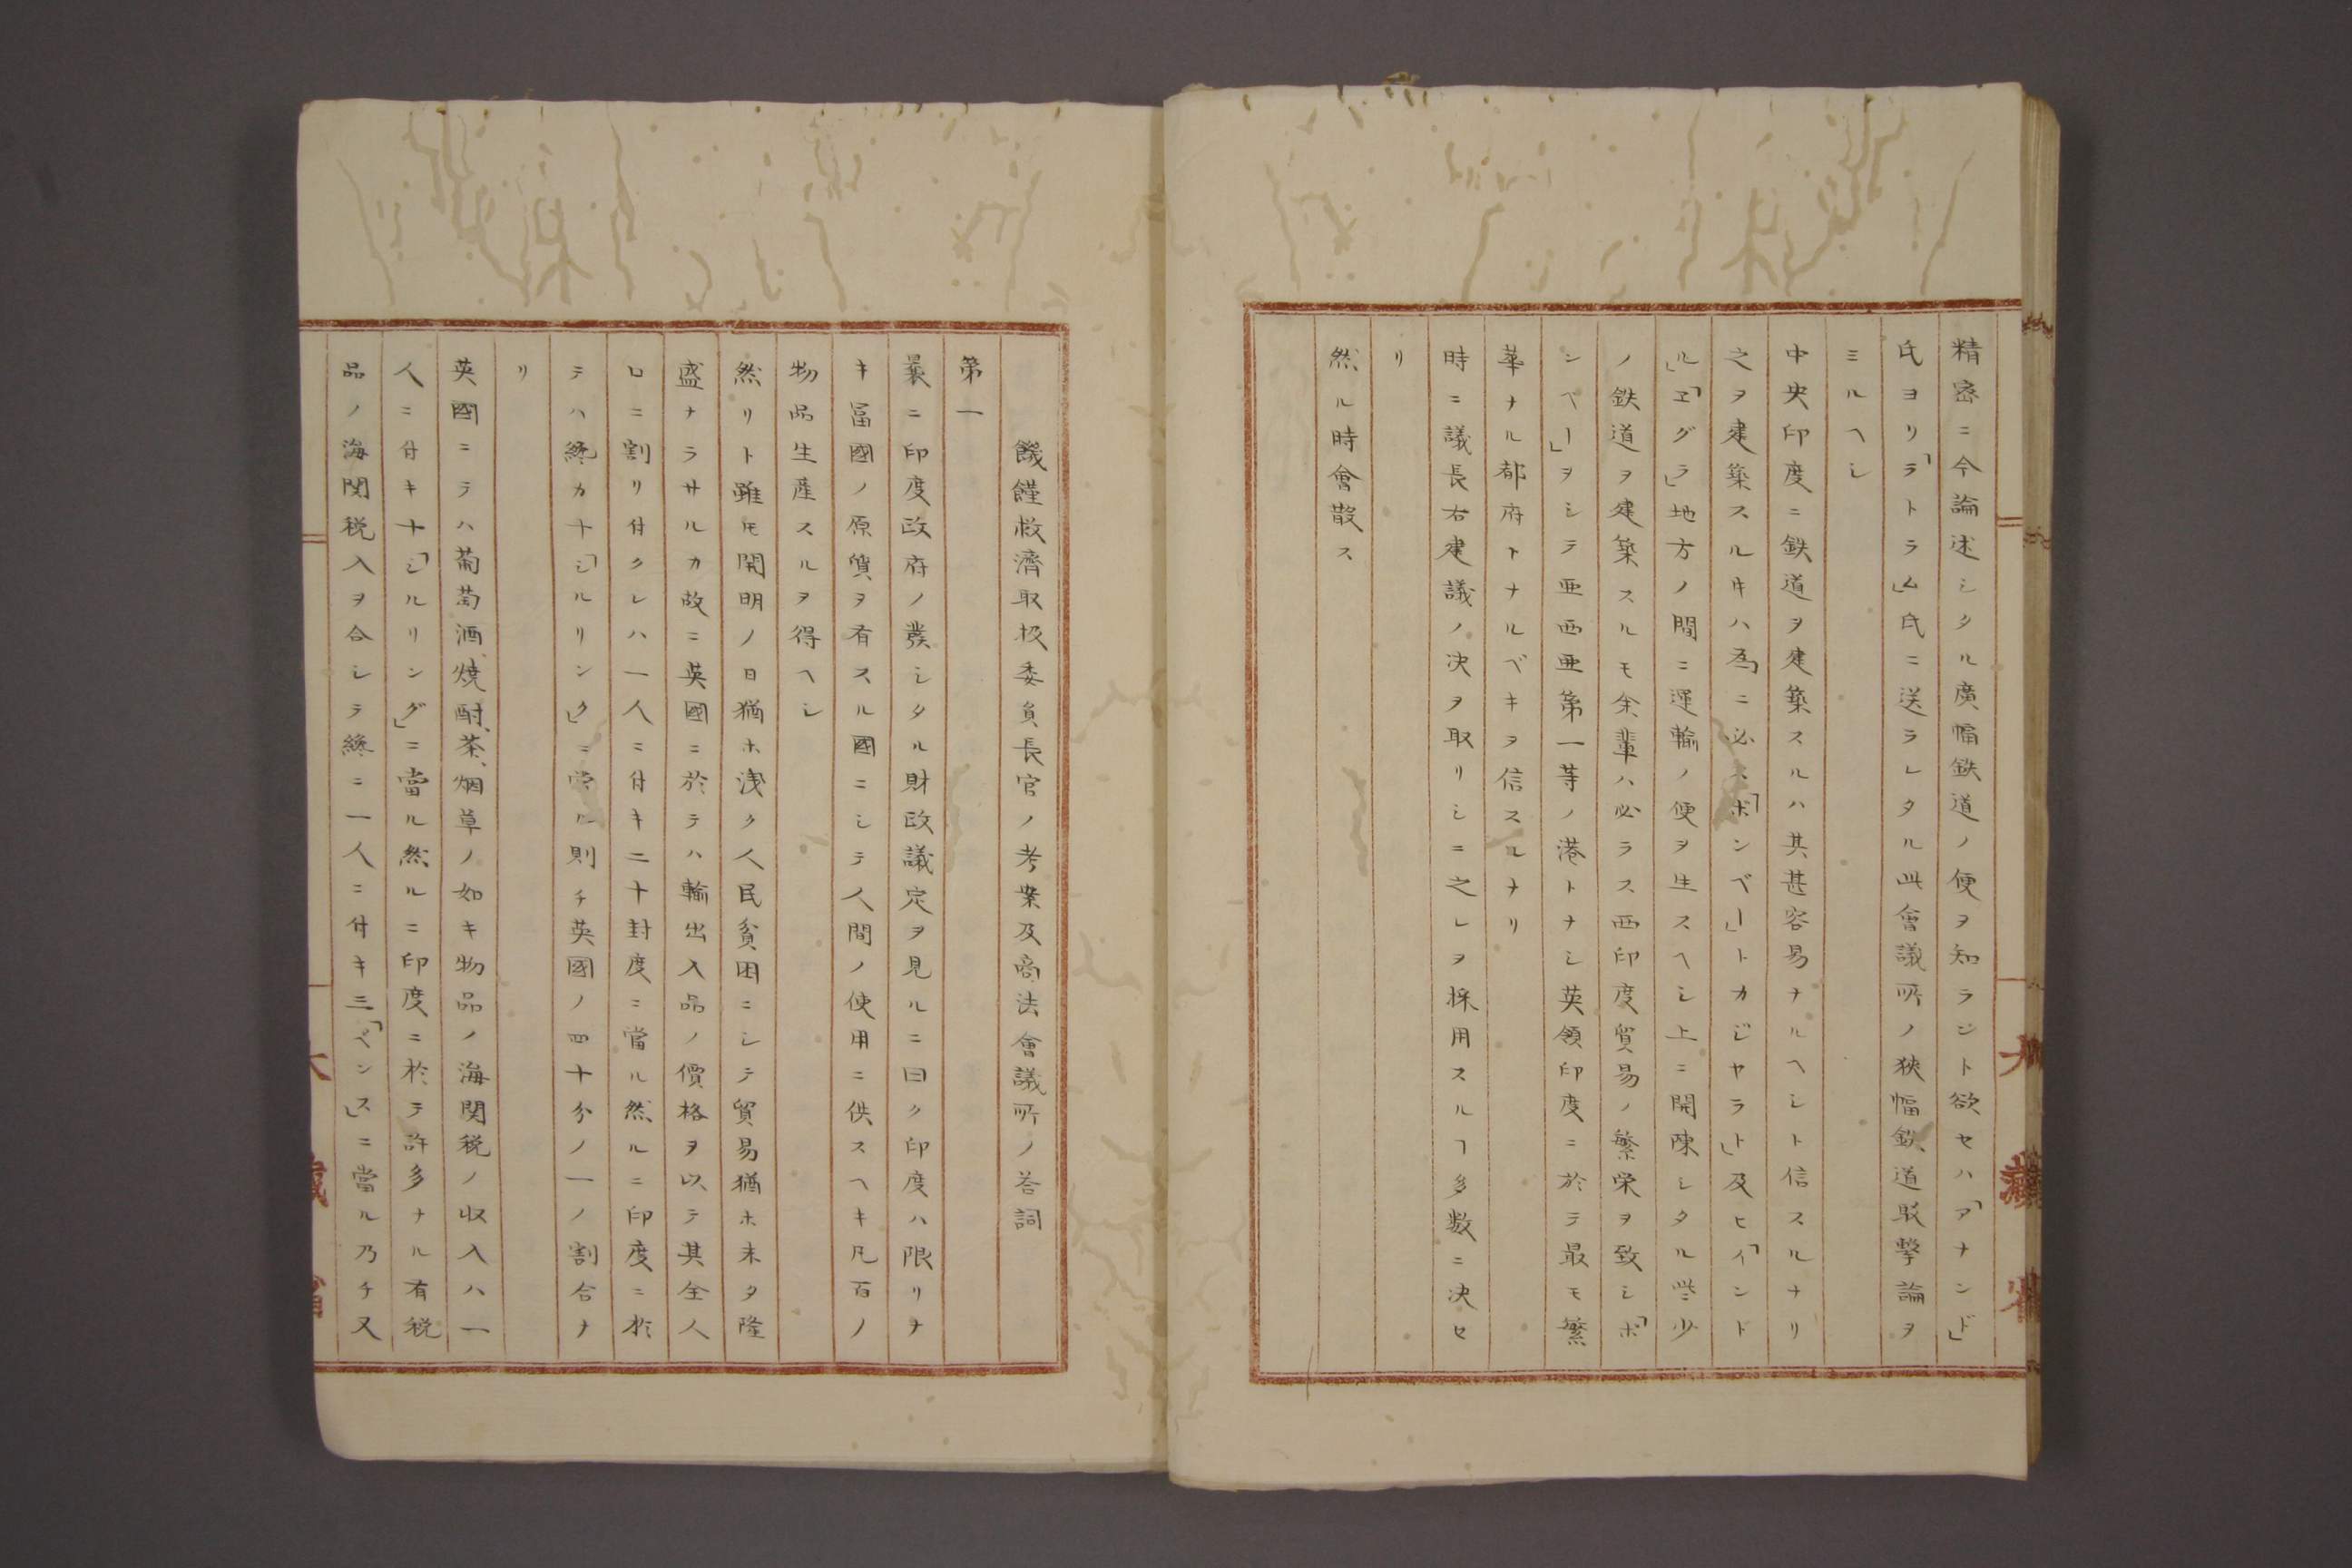 精密ニ今論述シタル廣幅鉄道ノ便ヲ知ラント欲セハ「アナンド」
氏ヨリ「ラトラム」氏ニ送ラレタル此會議所ノ狹幅鉄道駁撃論ヲ
ミルヘシ
中央印度ニ鉄道ヲ建築スルハ其甚容易ナルヘシト信スルナリ
之ヲ建築スルキハ為ニ必ス「ボンベー」トカジヤラト」及ヒ「インド
ル」「ヱグラ」地方ノ間ニ運輸ノ便ヲ生スヘシ上ニ開陳シタル些少
ノ鉄道ヲ建築スルモ余輩ハ必ラス西印度貿易ノ繁栄ヲ致シ「ボ
ンベー」ヲシテ亜西亜第一等ノ港トナシ英領印度ニ於テ最モ繁
華ナル都府トナルベキヲ信スルナリ
時ニ議長右建議ノ决ヲ取リシニ之レヲ採用スルヿ多数ニ决セ
リ
然ル時會散ス
大藏省
饑饉救濟取扱委員長官ノ考案及商法會議所ノ荅詞
第一
曩ニ印度政府ノ發シタル財政議定ヲ見ルニ曰ク印度ハ限リナ
キ冨國ノ原質ヲ有スル國ニシテ人間ノ使用ニ供スヘキ凡百ノ
物品生産スルヲ得ヘシ
然リト雖モ開明ノ日猶ホ浅ク人民貧困ニシテ貿易猶ホ未タ隆
盛ナラサルカ故ニ英國ニ於テハ輸出入品ノ價格ヲ以テ其全人
口ニ割リ付クレハ一人ニ付キ二十封度ニ當ル然ルニ印度ニ於
テハ終カ十「シルリンク」ニ當ル則チ英國ノ四十分ノ一ノ割合ナ
リ
英國ニテハ葡萄酒、燒酎、茶、烟草ノ如キ物品ノ海関税ノ収入ハ一
人ニ付キ十「シルリング」ニ當ル然ルニ印度ニ於テ許多ナル有税
品ノ海関税入ヲ合シテ終ニ一人ニ付キ三「ペンス」ニ當ル乃チ又
大藏省